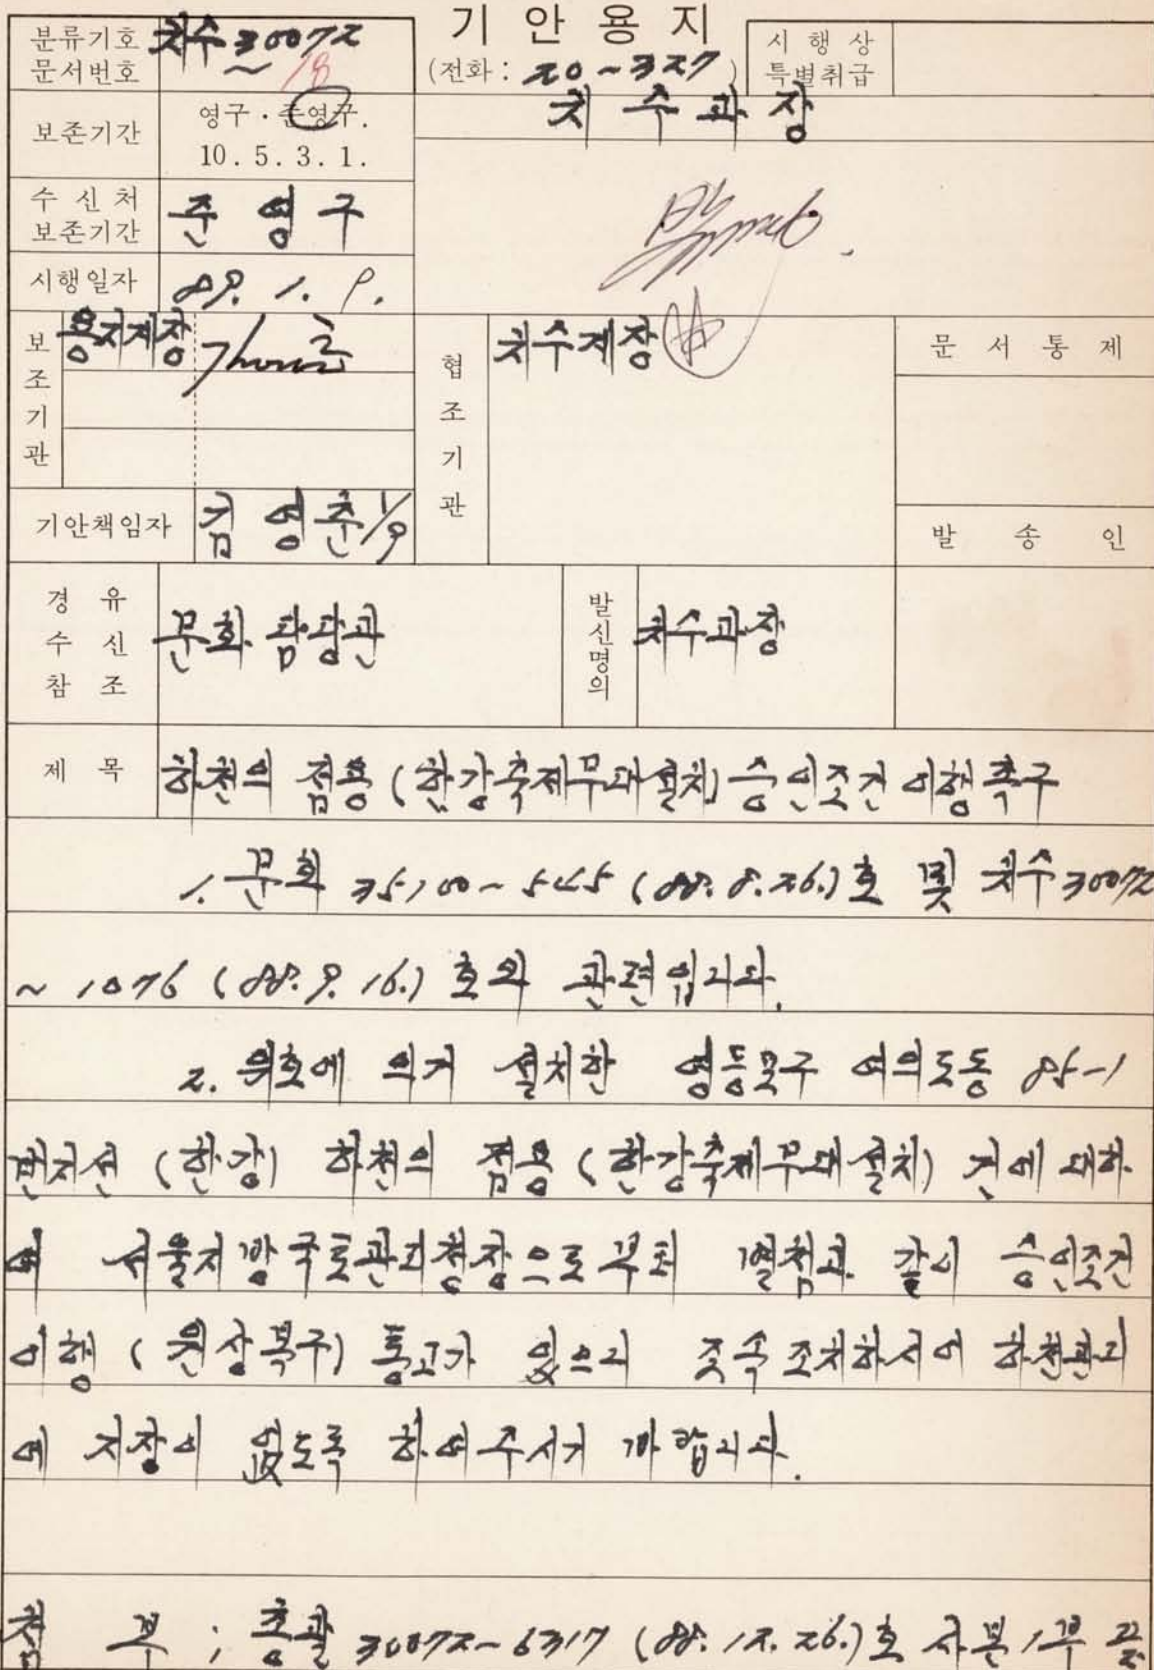 기안용지
분류기호 치수 30072
문서번호 ~ 18
(전화 : 20~327)
시행상
특별취급
치수과장
보존기간
영구·준영구.
10. 5. 3. 1.
수신처
보존기간
준영구
시행일자
89. 1. 9.
보조기관
용지계장
협조기관
치수계장
문서통제
기안책임자
김영춘 1/9
발송인
경유
수신
참조
문화담당관
발신명의
치수과장
제목
하천의 점용 (한강축제무대설치) 승인조건 이행촉구
1. 문화 35100~545 (88. 8. 26.)호 및 치수 30072
~ 1076 (88. 9. 16.) 호와 관련입니다.
2. 위호에 의거 설치한 영등포구 여의도동 85-1
번지선 (한강) 하천의 점용 (한강축제무대설치) 건에 대하
여 서울지방국토관리청장으로부터 별첨과 같이 승인조건
이행 (원상복구) 통고가 있으니 조속 조치하시어 하천관리
에 지장이 없도록 하여 주시기 바랍니다.
첨 부 ; 총괄 30072~6317 (88. 12. 26.)호 사본 1부 끝